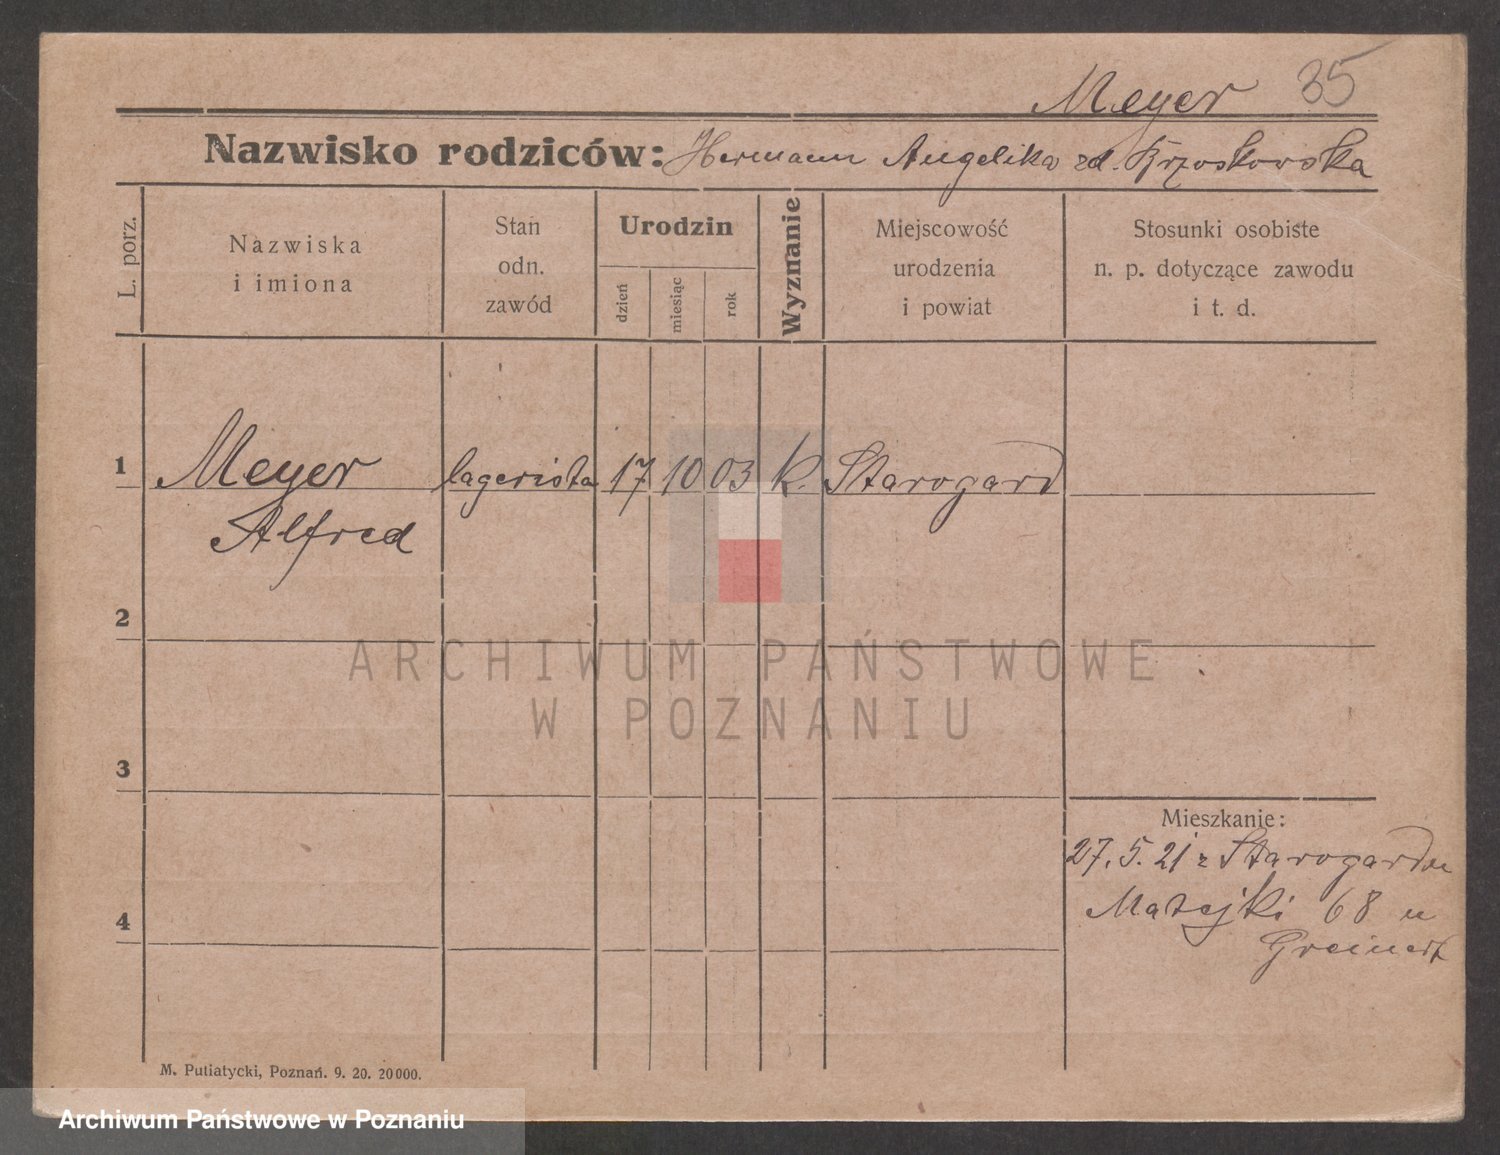 Meyer 35
Nazwisko rodziców: Hermann Angelika zd. Krzoskowska
L. porz.
Nazwiska
i imiona
Stan
odn.
zawód
Urodzin
dzień
miesiąc
rok
Wyznanie
Miejscowość
urodzenia
i powiat
Stosunki osobiste
n. p. dotyczące zawodu
i t. d.
1 Meyer lagerista 17 10 03 k. Starogard
Alfred
2
ARCHIWUM PAŃSTWOWE
W POZNANIU
3
Mieszkanie:
27. 5. 21 z Starogardu
Matejki 68 u
Greinert
4
M. Putiatycki, Poznań. 9. 20. 20000.
Archiwum Państwowe w Poznaniu